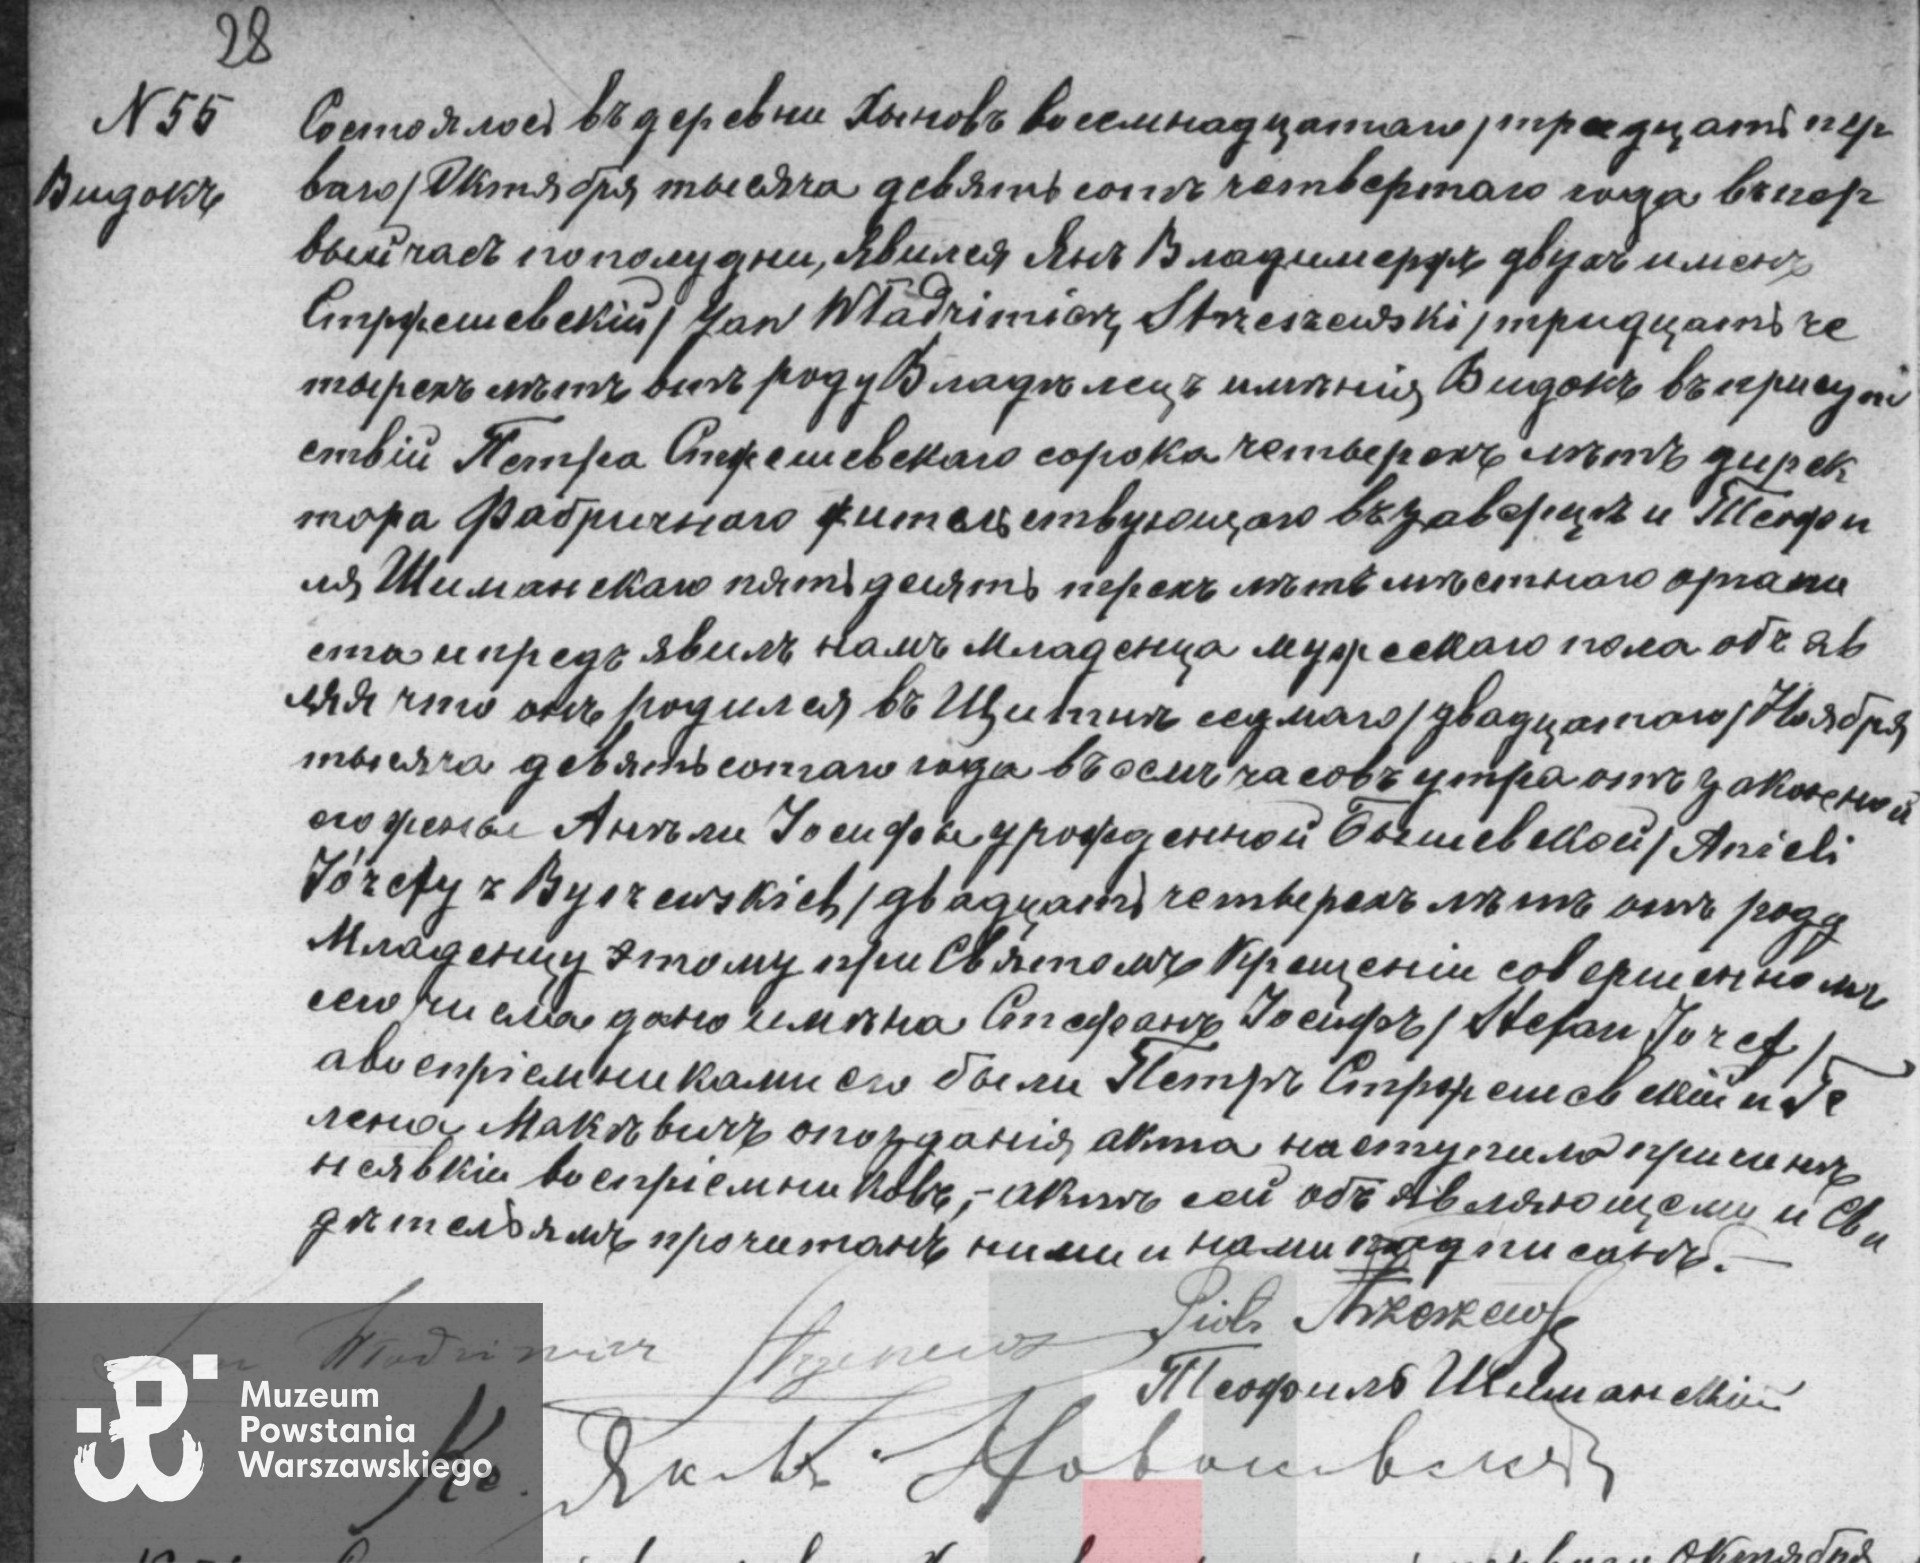 28
N 55
Видокъ
Состоялось въ деревни Хыновъ восемнадцатаго/тридцать пер
ваго/Октября тысяча девять сотъ четвертаго года въ пер
вый часъ пополудни, явился Янъ Владимержъ двухъ именъ
Стржешевскій/Jan Władzimierz Strzeszewski/тридцать че
тырехъ лѣтъ отъ роду Владѣлецъ имѣнія Видокъ въ присут
ствіи Петра Стржешевскаго сорока четырехъ лѣтъ дирек
тора Фабричнаго жительствующаго въ и Теофи
ля Шиманскаго пятьдесять лѣтъ мѣстнаго органи
ста и предъявилъ намъ Младенца мужескаго пола объяв
ляя что онъ родился въ седмаго/двадцатаго/Ноября
тысяча девятьсотаго года въ осмъ часовъ утра отъ законной
его жены Анѣли Іосифы урожденной Бышевской/Anieli
Józefy z Byszewskich/двадцать четырехъ лѣтъ отъ роду
Младенцу этому при Святомъ Крещеніи совершенномъ
сего числа дано имѣна Стефанъ Іосифъ/Stefan Józef/
а воспріемниками его были Петръ Стржешевскій и Ге
лена Макѣвичъ опозданія акта наступило причинѣ
неявкіи воспріемниковъ,- актъ сей объявляющему и Сви
дѣтельямъ прочитанъ ними и нами подписанъ.-
Piotr Strzeszewski
Теофилъ Шиманскій
Muzeum
Powstania
Warszawskiego